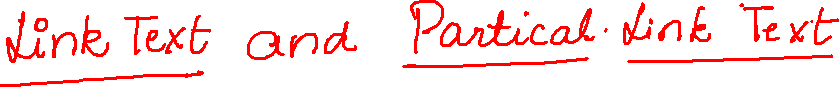 Link Text and Partical. Link Text